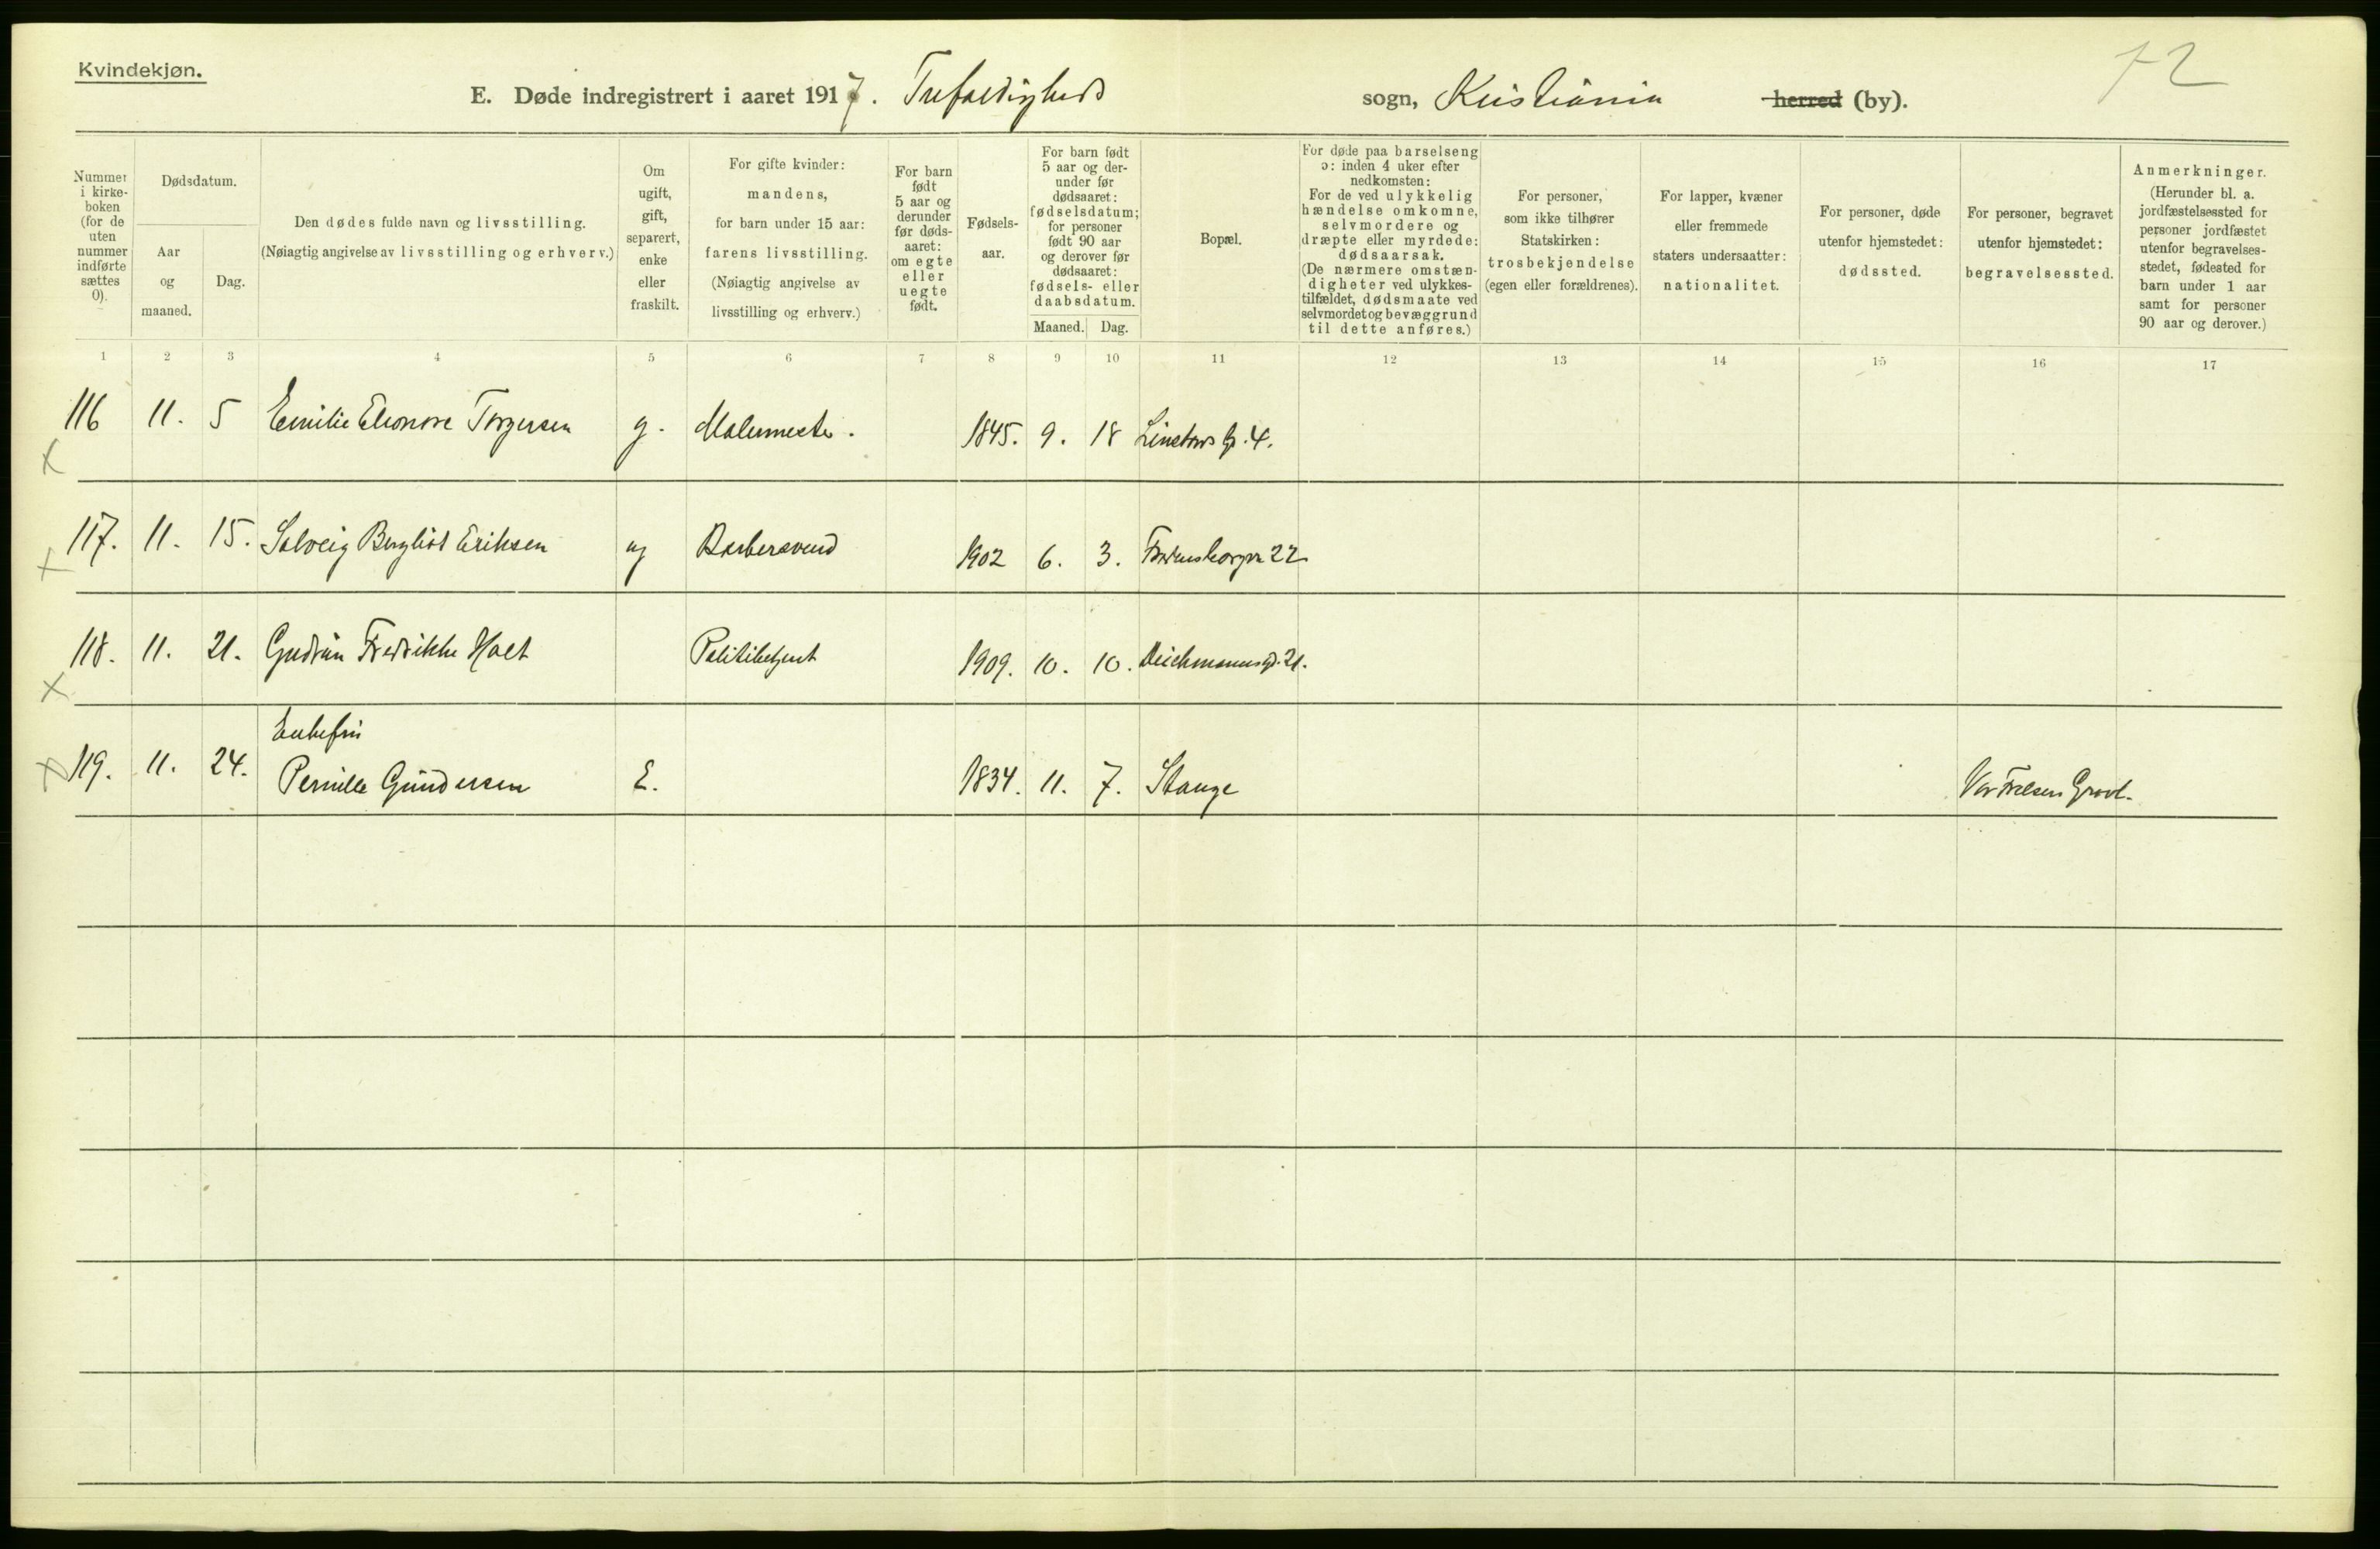 Kvindekjøn.
72
E. Døde indregistrert i aaret 1917. Trefoldigheds sogn, Kristiania herred (by).
Nummer i kirke- boken (for de uten nummer indførte sættes 0).
Dødsdatum.
Aar og maaned.
Dag.
Den dødes fulde navn og livsstilling.
(Nøiagtig angivelse av livsstilling og erhverv.)
Om ugift, gift, separert, enke eller fraskilt.
For gifte kvinder: mandens, for barn under 15 aar: farens livsstilling. (Nøiagtig angivelse av livsstilling og erhverv.)
For barn født 5 aar og derunder før døds- aaret: om egte eller uegte født.
Fødsels- aar.
For barn født 5 aar og der- under før dødsaaret: fødselsdatum; for personer født 90 aar og derover før dødsaaret: fødsels- eller daabsdatum.
Maaned. Dag.
Bopæl.
For døde paa barselseng ɔ: inden 4 uker efter nedkomsten: For de ved ulykkelig hændelse omkomne, selvmordere og dræpte eller myrdede: dødsaarsak. (De nærmere omstæn- digheter ved ulykkes- tilfældet, dødsmaate ved selvmordet og bevæggrund til dette anføres.)
For personer, som ikke tilhører Statskirken: trosbekjendelse (egen eller forældrenes).
For lapper, kvæner eller fremmede staters undersaatter: nationalitet.
For personer, døde utenfor hjemstedet: dødssted.
For personer, begravet utenfor hjemstedet: begravelsessted.
Anmerkninger. (Herunder bl. a. jordfæstelsessted for personer jordfæstet utenfor begravelses- stedet, fødested for barn under 1 aar samt for personer 90 aar og derover.)
1 2 3 4 5 6 7 8 9 10 11 12 13 14 15 16 17
116 11. 5 Emilie Eleonore Torgersen g. Malermester. 1845. 9. 18 Linstows g. 4.
x
117. 11. 15. Solveig Bergliot Eriksen ug Barbersvend 1902 6. 3. 22
x
118. 11. 21. Gudrun Fredrikke Holt Politibetjent 1909. 10. 10. Deichmannsgd. 21.
x
Enkefru
x 119. 11. 24. Pernille Gundersen E. 1834. 11. 7. Stange Vor Frelsers Gravl.